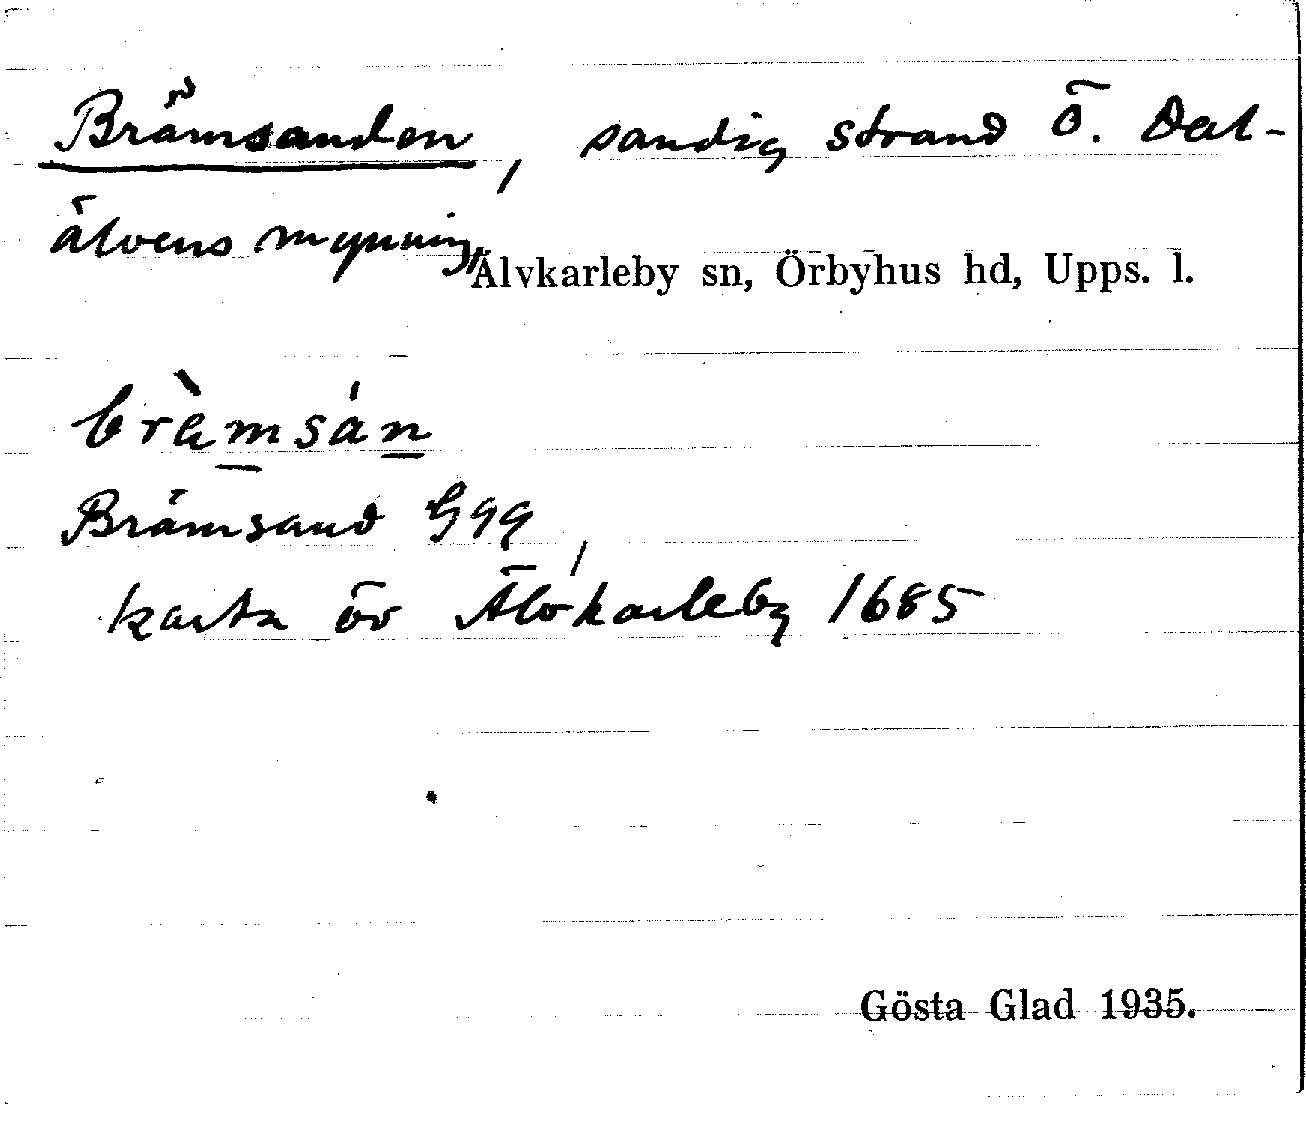 Brämsanden, sandig strand Ö. Dal-
älvens mynning,
Älvkarleby sn, Örbyhus hd, Upps. l.
bràmsán
Brämsand G99,
karta öv Älvkarleby 1685
Gösta Glad 1935.